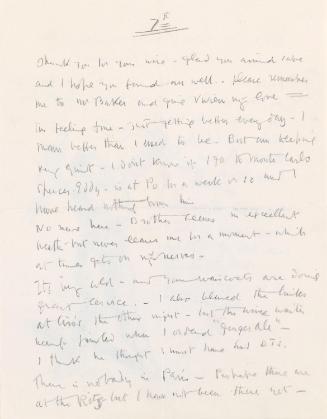 7th
Thank you for your wire - glad you arrived safe
and I hope you found all well. Please remember
me to Mr Baker and give Vivien my love
I'm feeling fine - just getting better every day - I
mean better than I used to be. But am keeping
very quiet - I don't know if I go to Monte Carlo
Spencer Eddy - is at Po for a week or so and I
have heard nothing from him
No news here - Brother seems in excellent
health - but never leaves me for a moment - which
at times gets on my nerves -
It's very cold - and your waistcoats are doing
great service. - I also the
at Ciro's the other night - but the wine waiter
nearly fainted when I ordered "gingerale" -
I think he thought I must have had D.T.s.
There is nobody in Paris - Perhaps there are
at the Ritz but I have not been there yet -